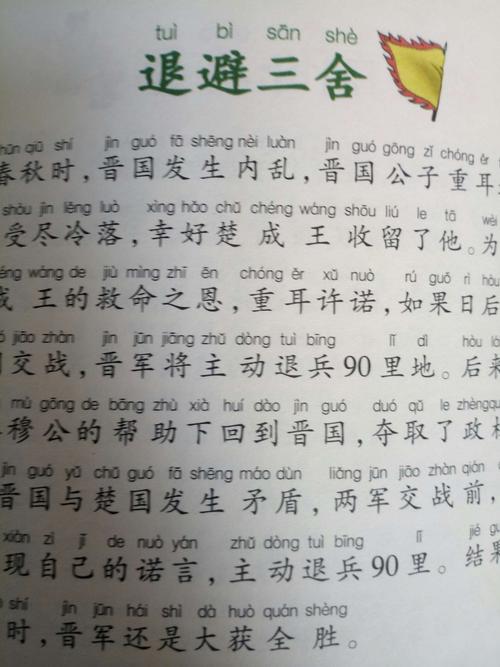 tuì bì sān shè
退避三舍
chūn qiū shí jìn guó fā shēng nèi luàn jìn guó gōng zǐ chóng ěr
春秋时，晋国发生内乱，晋国公子重耳
shòu jìn lěng luò xìng hǎo chǔ chéng wáng shōu liú le tā wèi
受尽冷落，幸好楚成王收留了他。为
éng wáng de jiù mìng zhī ēn chóng ěr xǔ nuò rú guǒ rì hòu
成王的救命之恩，重耳许诺，如果日后
jiāo zhàn jìn jūn jiāng zhǔ dòng tuì bīng lǐ dì hòu lái
交战，晋军将主动退兵90里地。后来
mù gōng de bāng zhù xià huí dào jìn guó duó qǔ le zhèngqu
穆公的帮助下回到晋国，夺取了政权
jìn guó yǔ chǔ guó fā shēng máo dùn liǎng jūn jiāo zhàn qián
晋国与楚国发生矛盾，两军交战前，
xiàn zì jǐ de nuò yán zhǔ dòng tuì bīng lǐ jié
现自己的诺言，主动退兵90里。结果
shí jìn jūn hái shì dà huò quán shèng
时，晋军还是大获全胜。